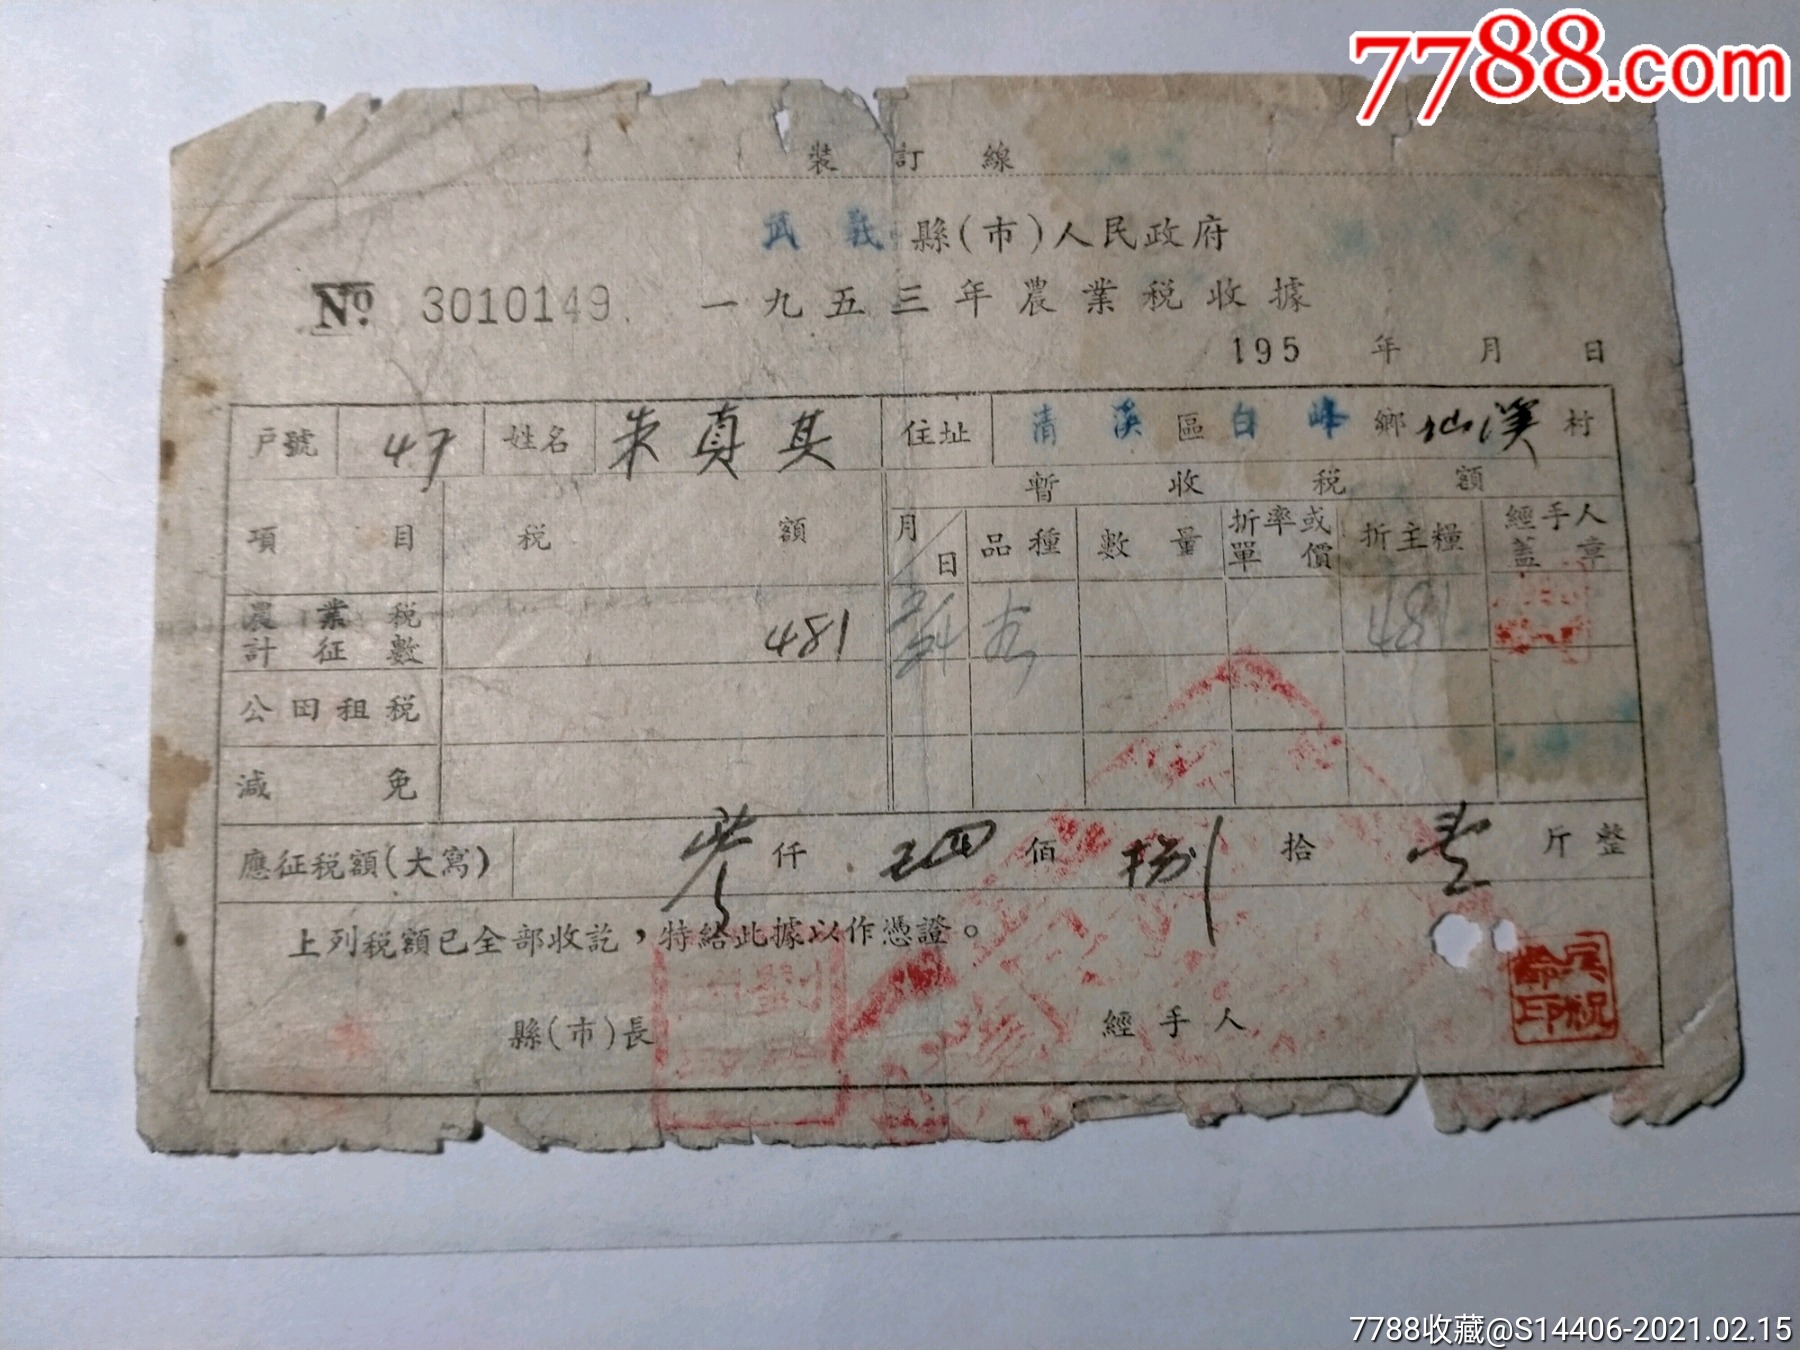 7788.com
裝 訂 線
武義縣(市)人民政府
№ 3010149. 一九五三年農業税收據
195 年 月 日
戶號 47 姓名 朱真其 住址 清溪區白峰鄉仙溪村
暫收税額
項目 税額 月/日 品種 數量 折率或單價 折主糧 經手人蓋章
農業税計征數 481 481
公田租税
減免
應征税額(大寫) 仟 肆佰捌拾壹斤整
上列税額已全部收訖，特給此據以作憑證。
縣(市)長 經手人
7788收藏@S14406-2021.02.15